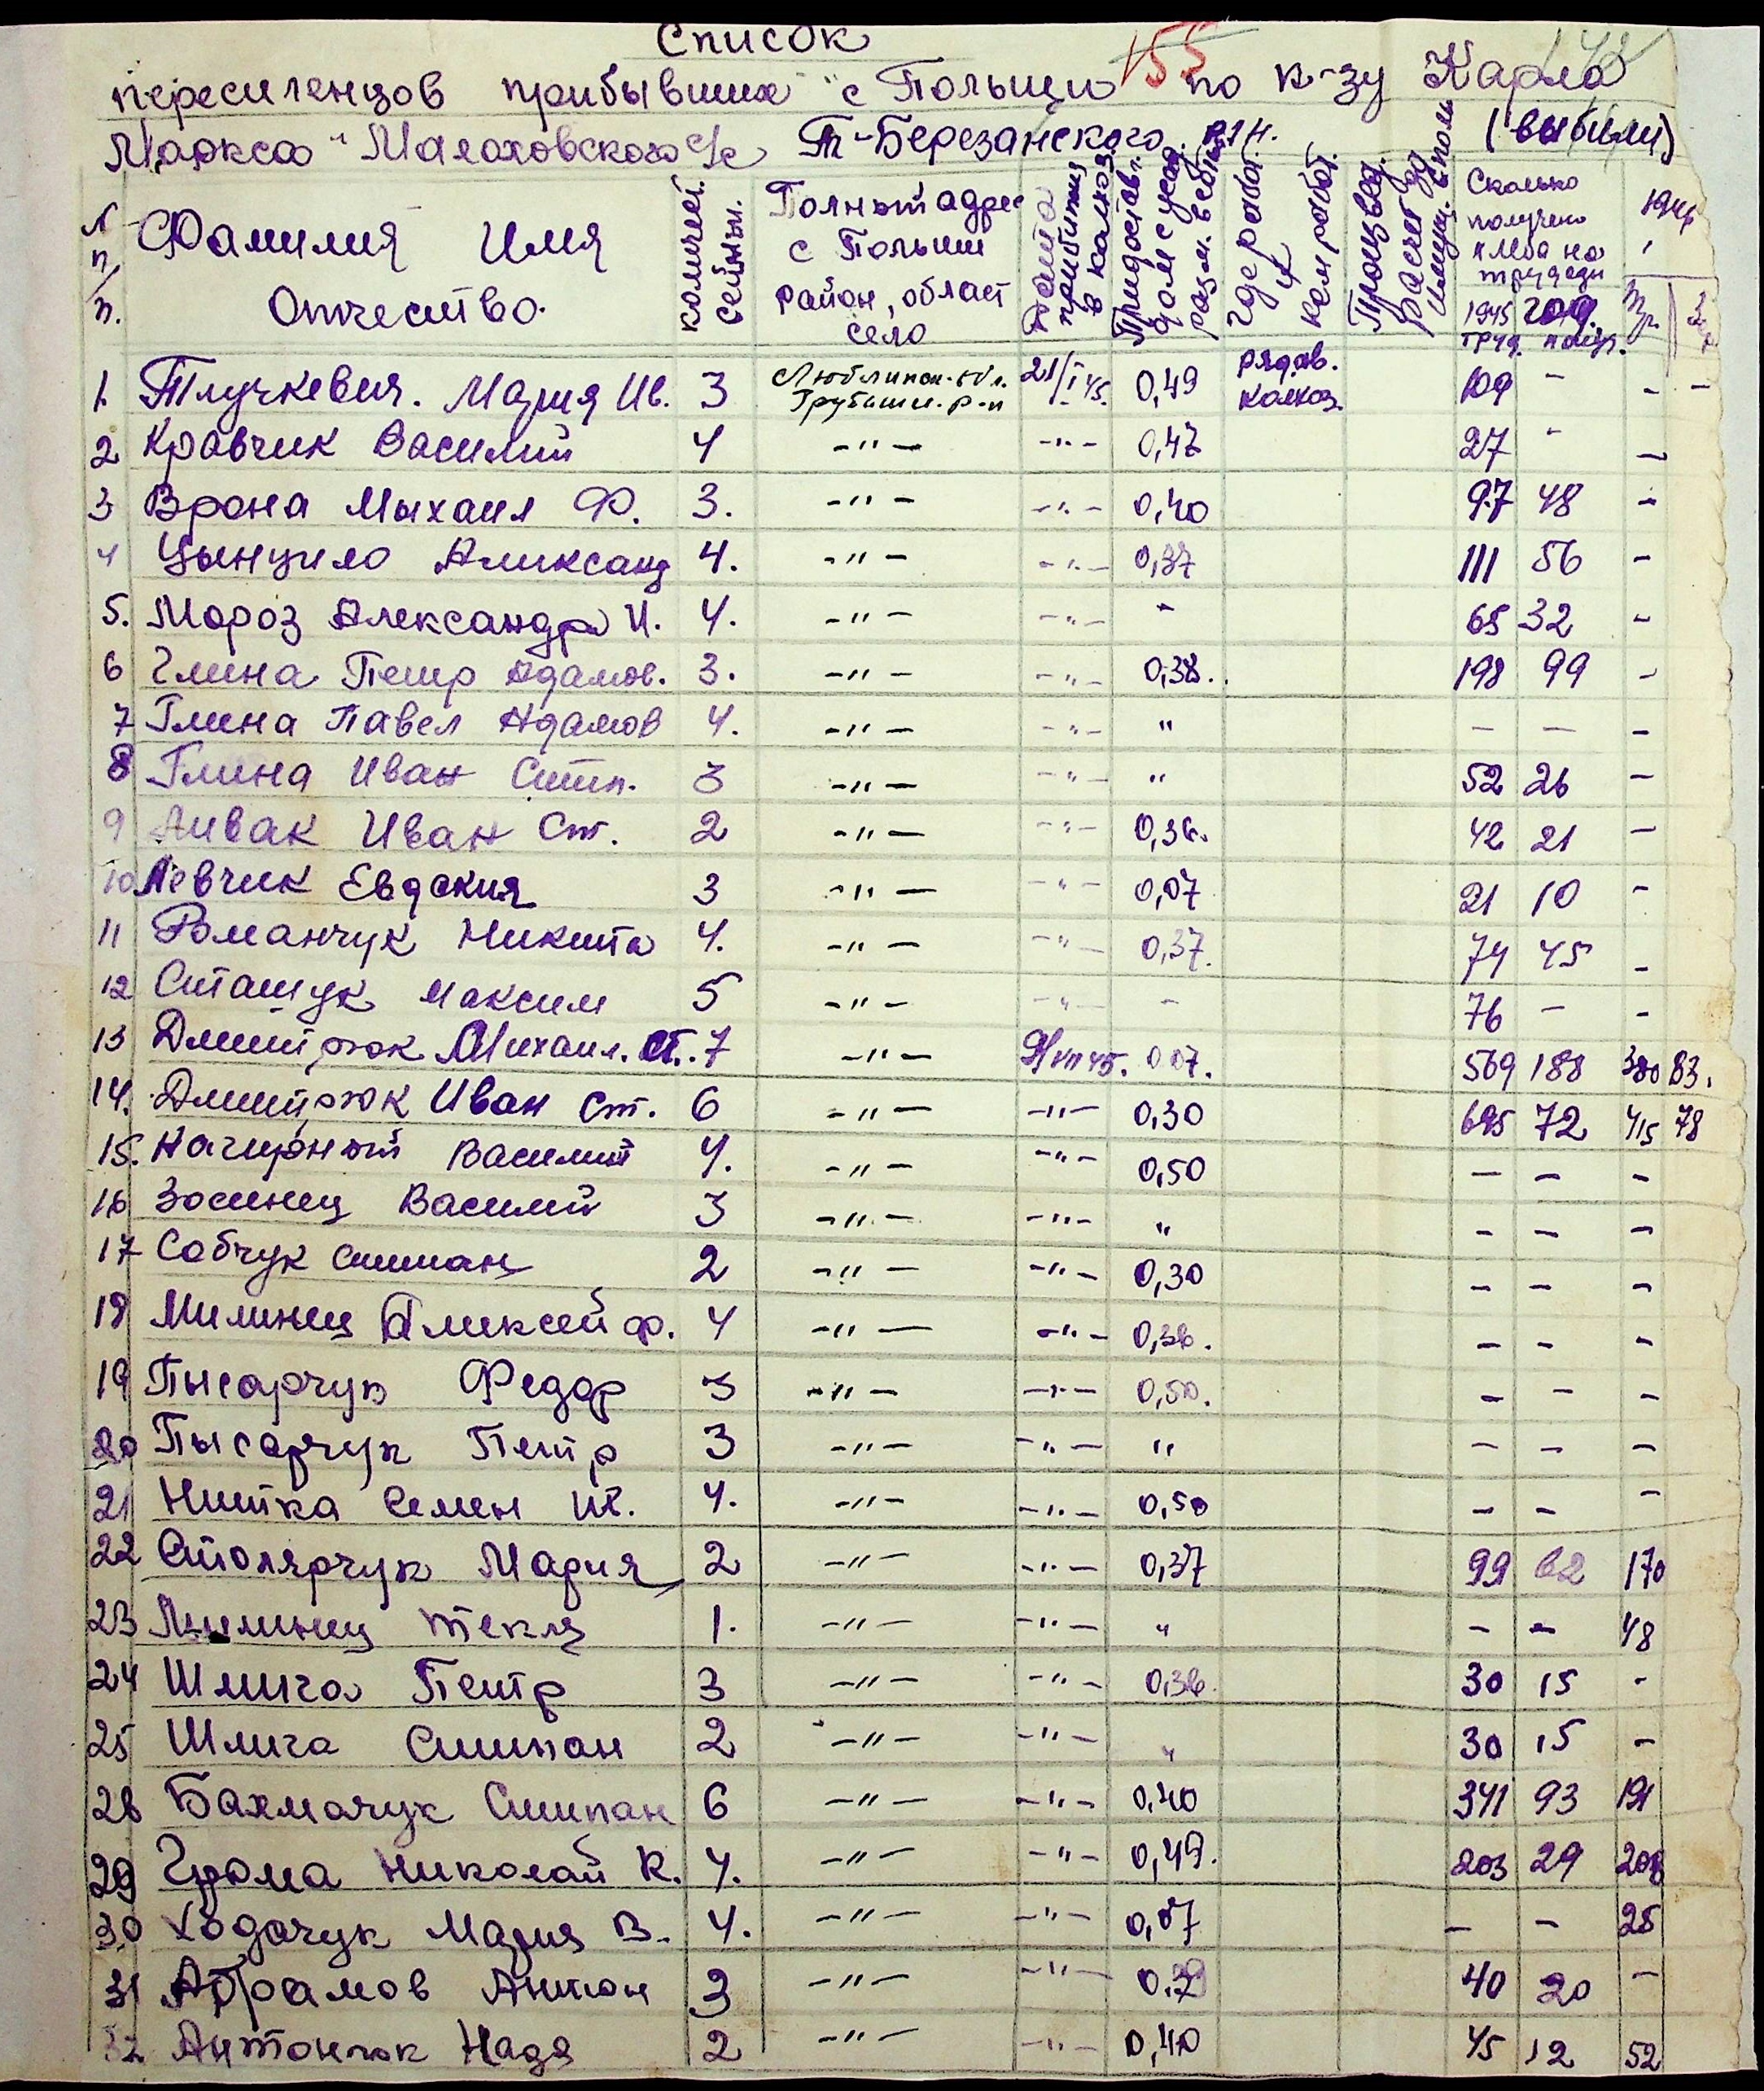 Список
155
переселенцов прибывших с Польщи по к-зу Карла
Маркса " Малаховского с/с Т-Березанского р-н. (выбыли)
№ п/п.
Фамилия Имя Отчество.
количест. семьи.
Полный адрес с Польши район, област село
Дата прибытия в колхоз
Придостав. дом с усад. разм.
Где работ и кем работ.
Произвед. расчет
Сколько получено хлеба на трудодн
1945 год.
труд. получ.
1946
тр.
1. Тлучкевич. Мария Ив. 3 Люблинск. обл. Грубешив. р-н 21/I 45. 0,49 рядов. колхоз. 109 - - -
2 Кравчик Василий 4 -"- -"- 0,47 27 - -
3 Врона Мыхаил Ф. 3. -"- -"- 0,40 97 48 -
4 Цынцило Аликсанд 4. -"- -"- 0,37 111 56 -
5. Мороз Александра И. 4. -"- -"- - 65 32 -
6 Глина Петр Адамов. 3. -"- -"- 0,38. 198 99 -
7 Глина Павел Адамов 4. -"- -"- " - - -
8 Глина Иван Стп. 3 -"- -"- " 52 26 -
9 Ливак Иван Ст. 2 -"- -"- 0,36. 42 21 -
10 Левчик Евдокия 3 -"- -"- 0,07 21 10 -
11 Романчук Никита 4. -"- -"- 0,37. 74 45 -
12 Сташук Максим 5 -"- -"- - 76 - -
13 Дмитрюк Михаил. Ст. 7 -"- 9/VII 45. 0 07. 569 188 380 83.
14. Дмитрюк Иван Ст. 6 -"- -"- 0,30 695 72 415 78
15. Качирный Василий 4. -"- -"- 0,50 - - -
16 Зосинец Василий 3 -"- -"- " - - -
17 Собчук Стипан 2 -"- -"- 0,30 - - -
18 Милинец Аликсей Ф. 4 -"- -"- 0,36. - - -
19 Пысарчук Федор 3 -"- -"- 0,50. - - -
20 Пысарчук Петр 3 -"- -"- " - - -
21 Нитка Семен Ив. 4. -"- -"- 0,50 - - -
22 Столярчук Мария 2 -"- -"- 0,37 99 62 170
23 Милинец Текля 1. -"- -"- " - - 48
24 Шлига Петр 3 -"- -"- 0,36. 30 15 -
25 Шлига Стипан 2 -"- -"- " 30 15 -
28 Бахмачук Стипан 6 -"- -"- 0,40 341 93 191
29 Грома Николай К. 4. -"- -"- 0,49. 203 29 208
30 Ходачук Мария В. 4. -"- -"- 0,07 - - 25
31 Абрамов Антон 3 -"- -"- 0.39 40 20 -
32 Антонюк Надя 2 -"- -"- 0,40 45 12 52